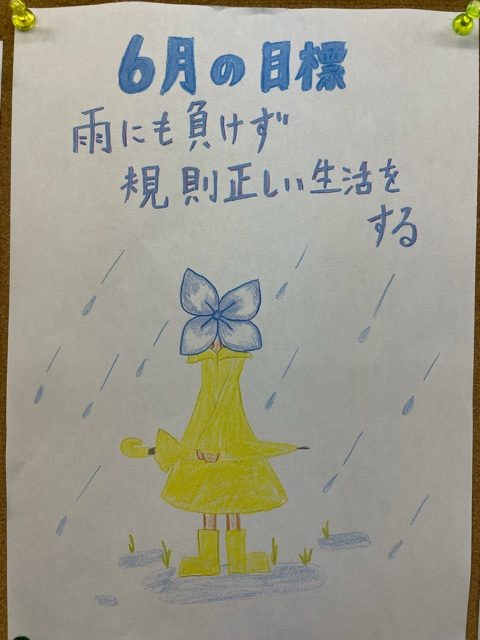 6月の目標
雨にも負けず
規則正しい生活を
する